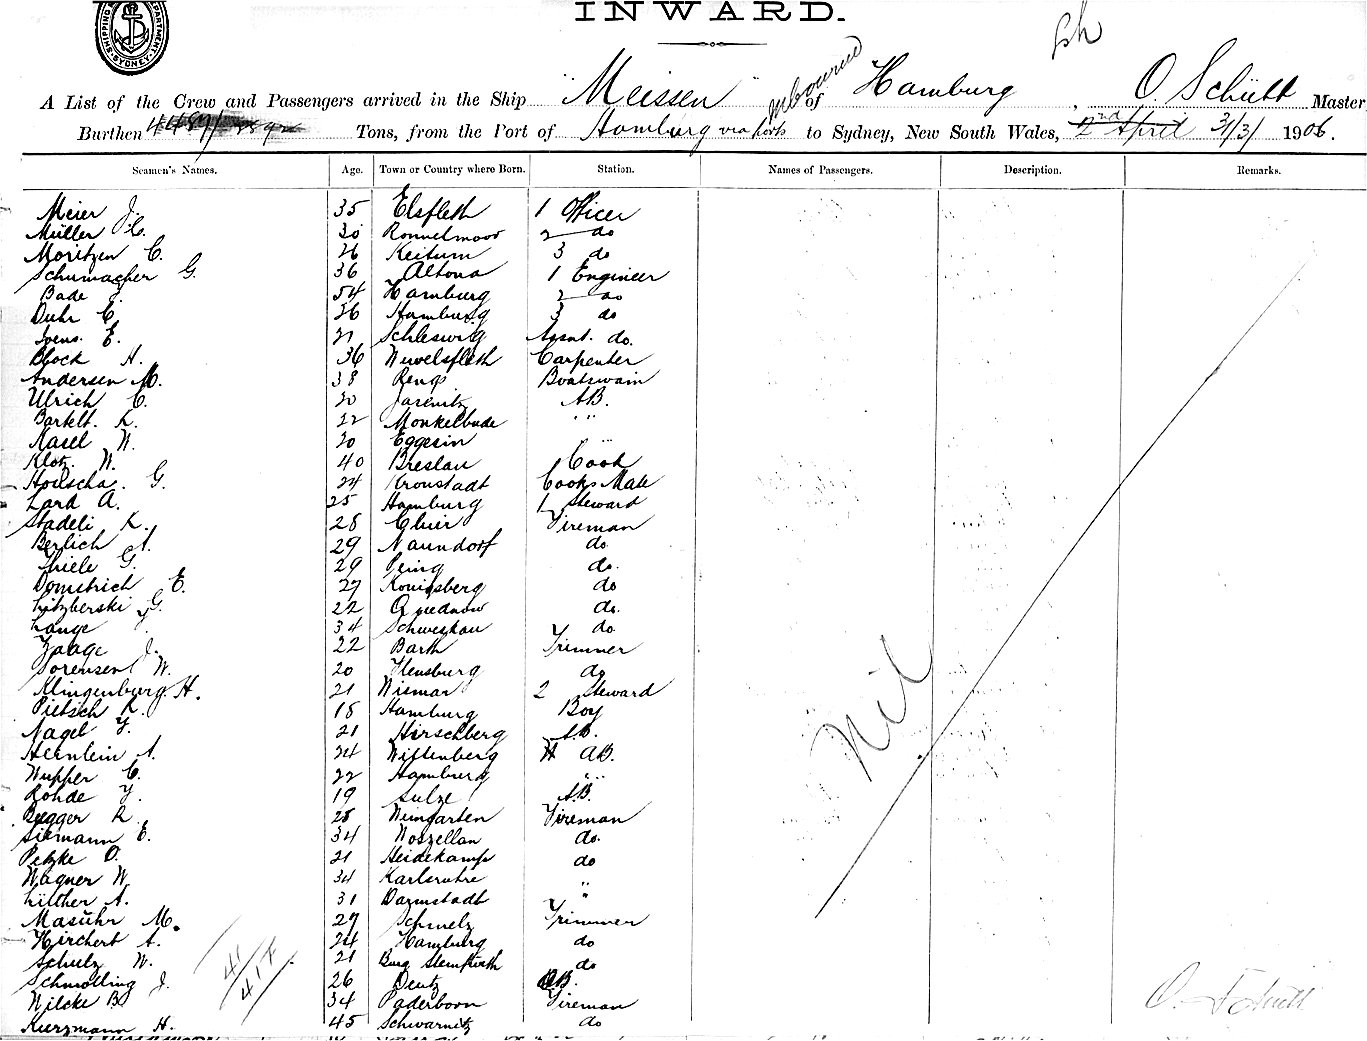 INWARD.
SHIPPING DEPARTMENT SYDNEY
A List of the Crew and Passengers arrived in the Ship "Meissen" of Hamburg, O. Schütt Master
Burthen Tons, from the Port of Hamburg via Ports to Sydney, New South Wales, 2nd April 31/3/ 1906.
Seamen's Names. Age. Town or Country where Born. Station. Names of Passengers. Description. Remarks.
Meier J. 35 Elsfleth 1 Officer
Müller H. 30 Ronnelmoor 2 do
Moritzen C. 26 Keitum 3 do
Schumacher G. 36 Altona 1 Engineer
Bade J. 54 Hamburg 2 do
Duhr C. 26 Hamburg 3 do
Ivens E. 21 Schleswig Assnt. do.
Block H. 36 Wewelsfleth Carpenter
Andersen M. 38 Boatswain
Ulrich C. 20 Jasenitz AB.
Bartelt. K. 22 Monkelbude " "
Kasel W. 20 Eggesin " "
Klotz W. 40 Breslau 1 Cook
G. 24 Kronstadt Cooks Mate
A. 25 Hamburg 1 Steward
Stadeli K. 28 Chur Fireman
Berlich A. 29 Naundorf do
Thiele G. 29 do.
Dometrich E. 27 Konigsberg do
Litzberski G. 22 Quednow do.
Lange F. 34 Schweskau do
Zaage J. 22 Barth Trimmer
Sorensen W. 20 Flensburg do
Klingenburg H. 21 Wismar 2 Steward
Pietsch K. 18 Hamburg Boy
Nagel F. 21 Hirschberg AB.
Hernlein A. 24 Wittenberg AB.
Wupper C. 22 Hamburg " "
Rohde F. 19 Sulze AB.
Regger K. 28 Weingarten Fireman
Siemann E. 34 Woszellan do.
Petzke O. 21 Heidekamp do
Wagner W. 34 Karlsruhe "
Lüther A. 31 Darmstadt "
Masuhr M. 29 Schmelz Trimmer
Hirchert A. 24 Hamburg do
Schulz W. 21 Burg Steinfurth do
Schmolling J. 26 Deutz AB.
Wilcke B. 34 Paderborn Fireman
Kurzmann H. 45 Schwarnitz do
Nil
41/417
O. Schütt